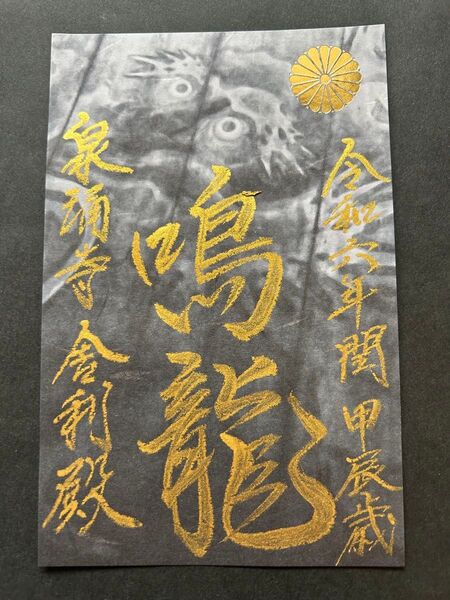 令和六年閏 甲辰歳
鳴龍
泉涌寺 舎利殿